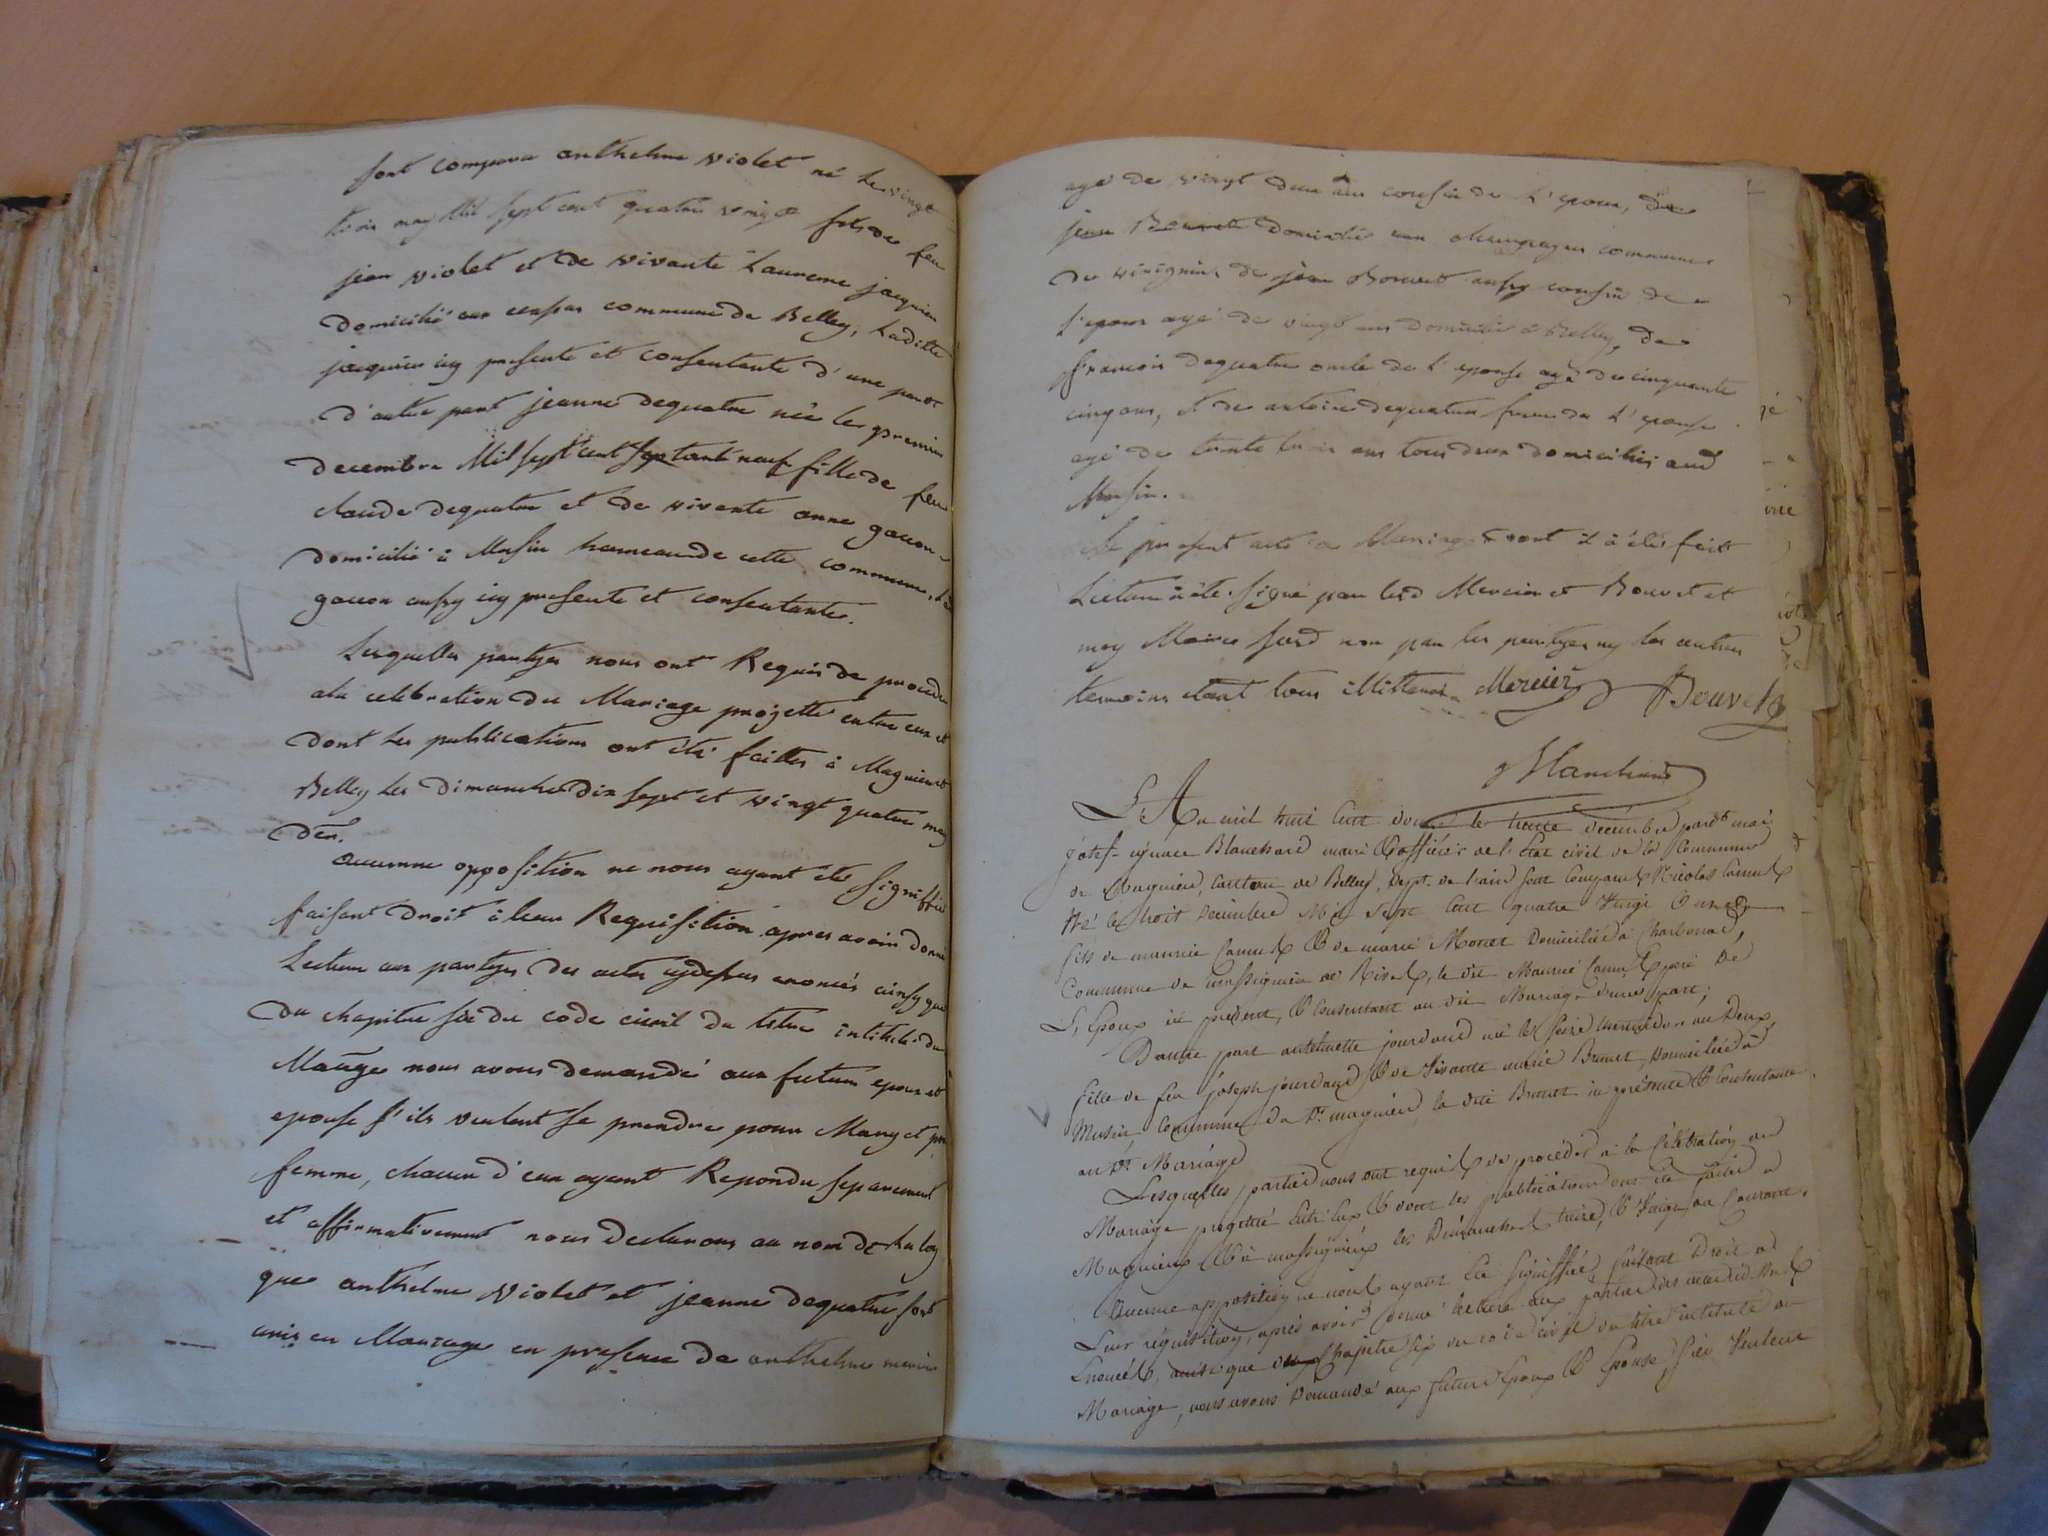 sont comparu anthelme violet né le vingt
trois may mil sept cent quatre vingt fils de feu
jean violet et de vivante Laurence jacquin
domicilié aux commune de Belley, Laditte
jacquin icy presente et consentante d'une part
d'autre part jeanne dequatre née le premier
decembre Mil sept cent septante neuf fille de feu
claude dequatre et de vivante anne gaccon
domicilié à Musin hameaude cette commune, La
gaccon aussy icy presente et consentante.
Lesquelles partyes nous ont Requis de procéder
a la celebration du Mariage projetté entre eux et
dont les publications ont été faittes à Magnieu et
Belley les dimanche dix sept et vingt quatre may
der.
aucunne opposition ne nous ayant été signiffié
faisant droit à leur Requisition apres avoir donné
Lecture aux partyes des actes cydessus enoncés ainsy que
du chapitre six du code civil du titre intitulé du
Mariage nous avons demandé aux futurs epoux et
epouse s'ils veulent se prendre pour Mary et pr
femme, chacun d'eux ayant Repondu separement
et affirmativement nous declarons au nom de La loy
que anthelme violet et jeanne dequatre sont
unis en Mariage en presence de anthelme mercier
agé de vingt deux ans cousin de L'epoux, de
jean Bouvet domicilié aux champagne commune
de virignin, de jean Bouvet aussy cousin de
L'epoux agé de vingt ans domicilié à Belley, de
francois dequatre oncle de L'epouse agé de cinquante
cinq ans, et de antoine dequatre frere de L'epouse
agé de trente trois ans tous deux domiciliés aud
Musin.
Le present acte de Mariage dont il a été fait
Lecture a été signé par lesd Mercier et Bouvet et
moy Maire susd non par les partyes ny les autres
temoins etant tous illitterés Mercier Bouvet
Blanchard
L'An mil huit Cent douze le trente décembre pardt moi
josef-ignace Blanchard maire & officier de l'Etat civil de la Commune
de Magnieu, Canton de Belley, Dept. de l'ain sont Comparus Nicolas Camus
Né le huit Décembre Mil Sept Cent quatre Vingt & onze
fils de maurice Camus & de marie Monet Domicilié à Charbonod,
Commune de massignieu de Rives, le dit Maurice Camus père de
L'Epoux ici présent, & Consentant au dit Mariage d'une part;
D'autre part anthelmette jourdand née le seize thermidor an Deux,
fille de feu joseph jourdand & de Vivante marie Brunet Domiciliée à
Musin Commune du dt. magnieu la dite Brunet ici présente & Consentante
au dt. Mariage
Lesquelles parties nous ont requis de procéder à la Célébration du
Mariage projetté entr'eux & dont les publications ont été faites à
Magnieux & à massignieux les Dimanches treize, & Vingt du Courant.
Aucune opposition ne nous ayant été signiffiée, faisant Droit à
Leur réquisition, après avoir donné lecture aux parties des actes
Enoncés, ainsi que du Chapitre six du code civil du titre intitulé du
Mariage, nous avons Demandé aux futurs Epoux & Epouse, s'ils Veulent